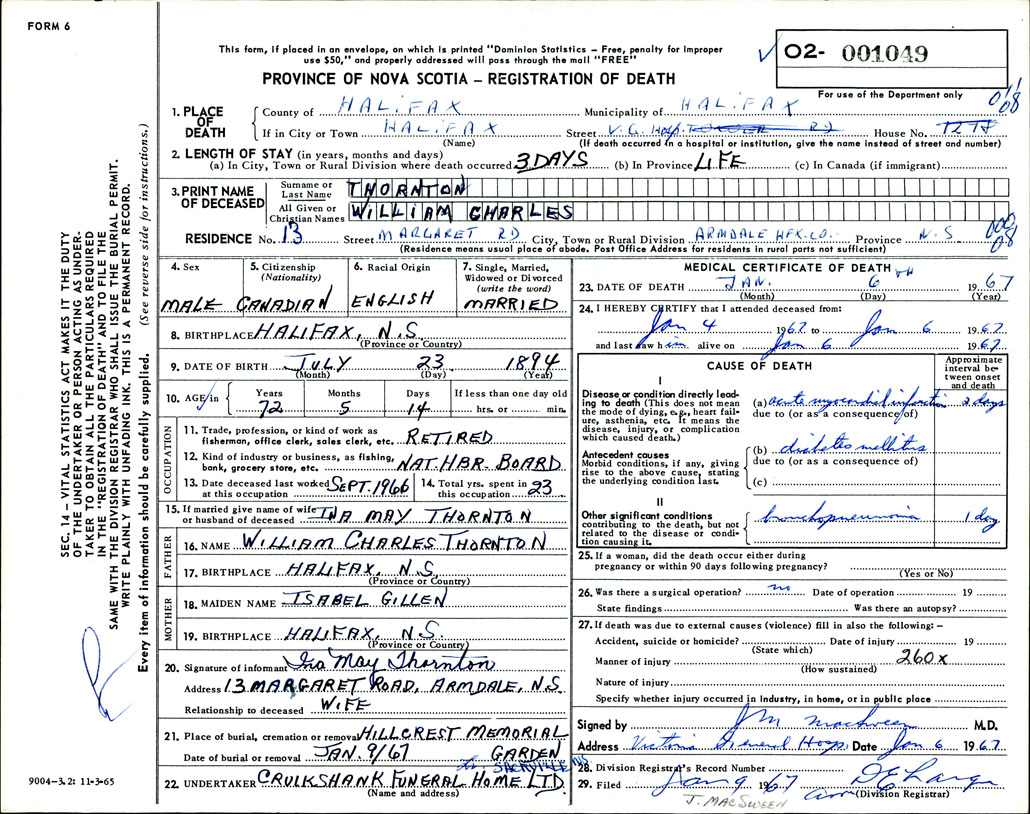 FORM 6
This form, if placed in an envelope, on which is printed "Dominion Statistics – Free, penalty for improper
use $50," and properly addressed will pass through the mail "FREE"
PROVINCE OF NOVA SCOTIA – REGISTRATION OF DEATH
O2- 001049
For use of the Department only
1. PLACE OF DEATH
County of HALIFAX Municipality of HALIFAX
If in City or Town HALIFAX Street V.G. HOSP. TOWER RD House No.
(Name) (If death occurred in a hospital or institution, give the name instead of street and number)
2. LENGTH OF STAY (in years, months and days)
(a) In City, Town or Rural Division where death occurred 3 DAYS (b) In Province LIFE (c) In Canada (if immigrant)
3. PRINT NAME OF DECEASED
Surname or Last Name THORNTON
All Given or Christian Names WILLIAM CHARLES
RESIDENCE No. 13 Street MARGARET RD City, Town or Rural Division ARMDALE HFX. CO. Province N.S
(Residence means usual place of abode. Post Office Address for residents in rural parts not sufficient)
4. Sex MALE
5. Citizenship (Nationality) CANADIAN
6. Racial Origin ENGLISH
7. Single, Married, Widowed or Divorced (write the word) MARRIED
8. BIRTHPLACE HALIFAX, N.S.
(Province or Country)
9. DATE OF BIRTH JULY 23 1894
(Month) (Day) (Year)
10. AGE in Years 72 Months 5 Days 14 If less than one day old hrs. or min.
OCCUPATION
11. Trade, profession, or kind of work as fisherman, office clerk, sales clerk, etc. RETIRED
12. Kind of industry or business, as fishing, bank, grocery store, etc. NAT. HBR. BOARD
13. Date deceased last worked at this occupation SEPT. 1966
14. Total yrs. spent in this occupation 23
15. If married give name of wife or husband of deceased INA MAY THORNTON
FATHER
16. NAME WILLIAM CHARLES THORNTON
17. BIRTHPLACE HALIFAX, N.S.
(Province or Country)
MOTHER
18. MAIDEN NAME ISABEL GILLEN
19. BIRTHPLACE HALIFAX, N.S.
(Province or Country)
20. Signature of informant Ina May Thornton
Address 13 MARGARET ROAD, ARMDALE, N.S.
Relationship to deceased WIFE
21. Place of burial, cremation or removal HILLCREST MEMORIAL GARDEN
Date of burial or removal JAN. 9/67
SACKVILLE N/S
22. UNDERTAKER CRUIKSHANK FUNERAL HOME LTD.
(Name and address)
MEDICAL CERTIFICATE OF DEATH
23. DATE OF DEATH JAN. 6TH 1967
(Month) (Day) (Year)
24. I HEREBY CERTIFY that I attended deceased from:
Jan 4 1967 to Jan 6 1967
and last saw him alive on Jan 6 1967
CAUSE OF DEATH
Approximate interval between onset and death
I
Disease or condition directly leading to death (This does not mean the mode of dying, e.g., heart failure, asthenia, etc. It means the disease, injury, or complication which caused death.)
(a) acute myocardial infarction 2 days
due to (or as a consequence of)
Antecedent causes
Morbid conditions, if any, giving rise to the above cause, stating the underlying condition last.
(b) diabetes mellitus
due to (or as a consequence of)
(c)
II
Other significant conditions contributing to the death, but not related to the disease or condition causing it.
bronchopneumonia 1 day
25. If a woman, did the death occur either during pregnancy or within 90 days following pregnancy?
(Yes or No)
26. Was there a surgical operation? no Date of operation 19
State findings Was there an autopsy?
27. If death was due to external causes (violence) fill in also the following: –
Accident, suicide or homicide? Date of injury 19
(State which)
Manner of injury 260x
(How sustained)
Nature of injury
Specify whether injury occurred in Industry, in home, or in public place
Signed by J M MacSween M.D.
Address Victoria General Hosp. Date Jan 6 1967
28. Division Registrar's Record Number
29. Filed Jan 9 1967
(Division Registrar)
J. MACSWEEN
SEC. 14 – VITAL STATISTICS ACT MAKES IT THE DUTY
OF THE UNDERTAKER OR PERSON ACTING AS UNDER-
TAKER TO OBTAIN ALL THE PARTICULARS REQUIRED
IN THE "REGISTRATION OF DEATH" AND TO FILE THE
SAME WITH THE DIVISION REGISTRAR WHO SHALL ISSUE THE BURIAL PERMIT.
WRITE PLAINLY WITH UNFADING INK. THIS IS A PERMANENT RECORD.
Every item of information should be carefully supplied. (See reverse side for instructions.)
9004-3.2: 11-3-65